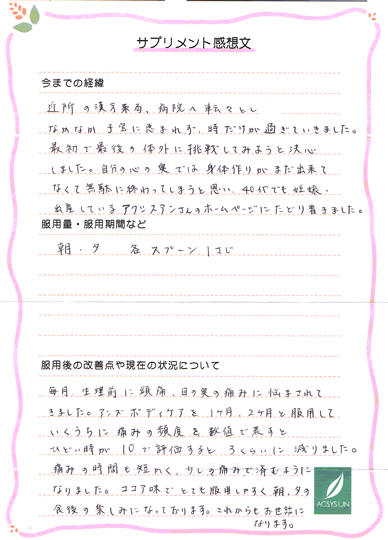 サプリメント感想文
今までの経緯
近所の漢方薬局、病院へ転々とし
なかなか子宝に恵まれず、時だけが過ぎていきました。
最初で最後の体外に挑戦してみようと決心
しました。自分の心の奥では身体作りがまだ出来て
なくて無駄に終わってしまうと思い、40代でも妊娠・
出産しているアクシスアンさんのホームページにたどり着きました。
服用量・服用期間など
朝・夕 各スプーン1さじ
服用後の改善点や現在の状況について
毎月、生理前に頭痛、目の奥の痛みに悩まされて
きました。アンズボディケアを1ヶ月、2ヶ月と服用して
いくうちに痛みの頻度を数値で表すと
ひどい時が10で評価すると3くらいに減りました。
痛みの時間も短かく、少しの痛みで済むように
なりました。ココア味でとても服用しやすく朝、夕の
食後の楽しみになっております。これからもお世話に
なります。
ACSYS UN